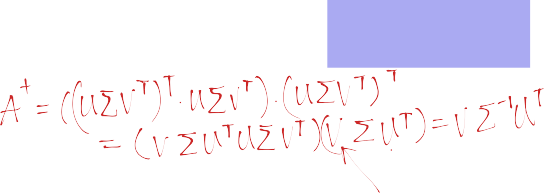 A⁺ = ((UΣVᵀ)ᵀ · UΣVᵀ) · (UΣVᵀ)ᵀ
= (VΣUᵀUΣVᵀ)(VΣUᵀ) = VΣ⁻¹Uᵀ